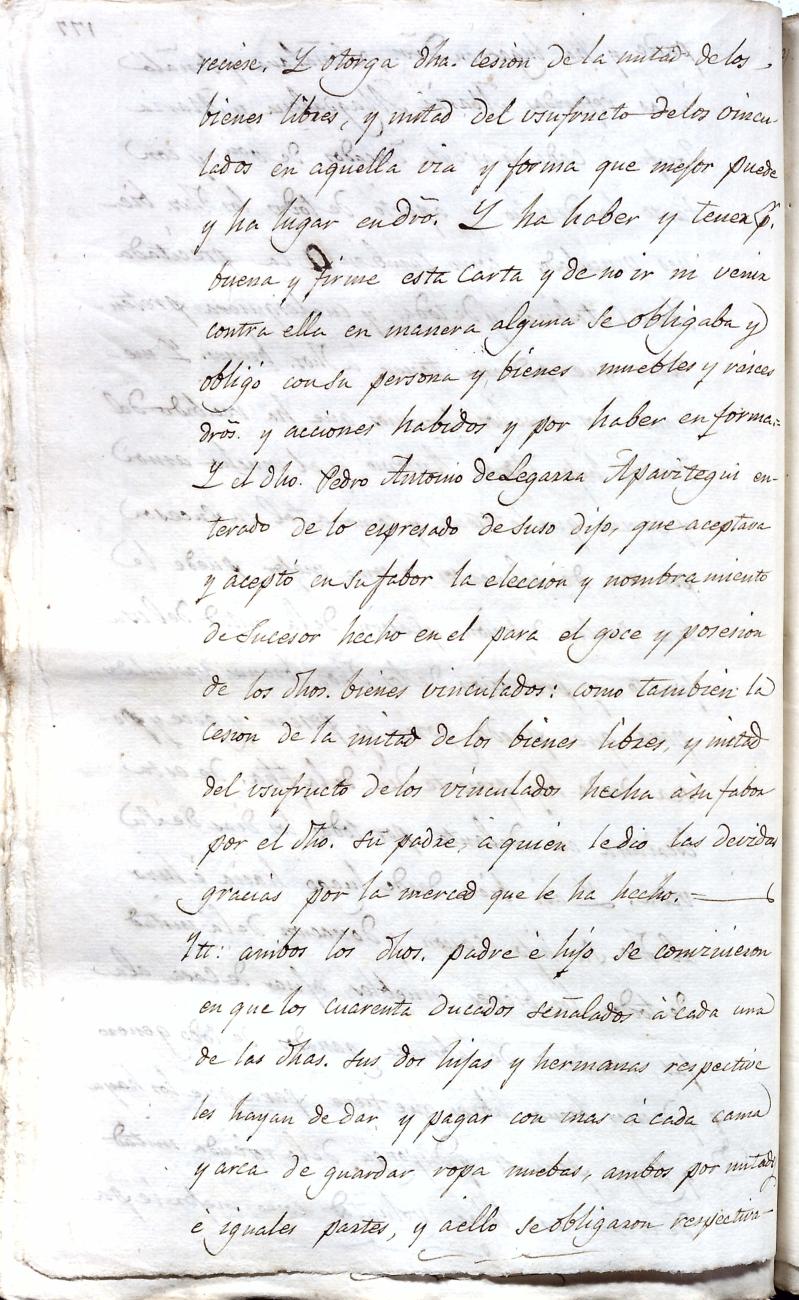 reciere. Y otorga dha. cesion de la mitad de los
bienes libres, y mitad del usufructo de los vincu-
lados en aquella via y forma que mejor puede
y ha lugar en dro. Y ha haber y tener pr.
buena y firme esta Carta y de no ir ni venir
contra ella en manera alguna se obligaba y
obligó con su persona y bienes muebles y raices
dros. y acciones habidos y por haber en forma.=
Y el dho. Pedro Antonio de Legarra Apavitegui en-
terado de lo espresado de suso dijo, que aceptava
y aceptó en su fabor la eleccion y nombramiento
de Sucesor hecho en el para el goce y posesion
de los dhos. bienes vinculados: como tambien la
cesion de la mitad de los bienes libres, y mitad
del usufructo de los vinculados hecha à su fabor
por el dho. su padre, à quien le dio las devidas
gracias por la merced que le ha hecho. =
Ytt: ambos los dhos. padre è hijo se convinieron
en que los cuarenta Ducados señalados à cada una
de las dhas. sus dos hijas y hermanas respective
les hayan de dar y pagar con mas à cada cama
y arca de guardar ropa nuebas, ambos por mitad
è iguales partes, y aello se obligaron respectiva-
177